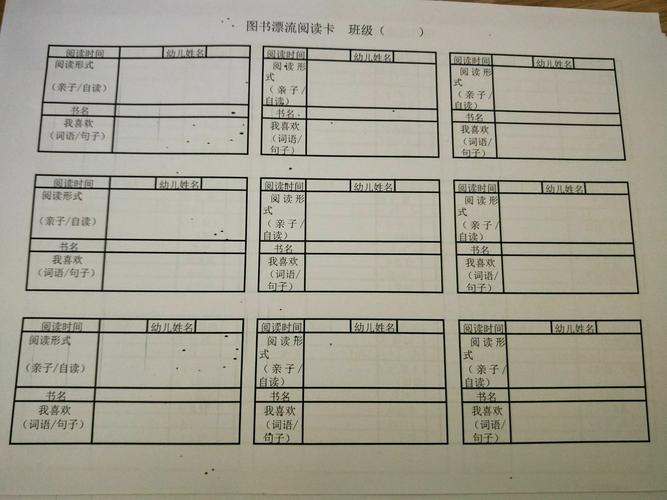 图书漂流阅读卡 班级（ ）
阅读时间 幼儿姓名
阅读形式
（亲子/自读）
书名
我喜欢
（词语/句子）
阅读时间 幼儿姓名
阅读形
式
（亲子/
自读）
书名
我喜欢
（词语/
句子）
阅读时间 幼儿姓名
阅读形
式
（亲子/
自读）
书名
我喜欢
（词语/
句子）
阅读时间 幼儿姓名
阅读形式
（亲子/自读）
书名
我喜欢
（词语/句子）
阅读时间 幼儿姓名
阅读形
式
（亲子/
自读）
书名
我喜欢
（词语/
句子）
阅读时间 幼儿姓名
阅读形
式
（亲子/
自读）
书名
我喜欢
（词语/
句子）
阅读时间 幼儿姓名
阅读形式
（亲子/自读）
书名
我喜欢
（词语/句子）
阅读时间 幼儿姓名
阅读形
式
（亲子/
自读）
书名
我喜欢
（词语/
句子）
阅读时间 幼儿姓名
阅读形
式
（亲子/
自读）
书名
我喜欢
（词语/
句子）